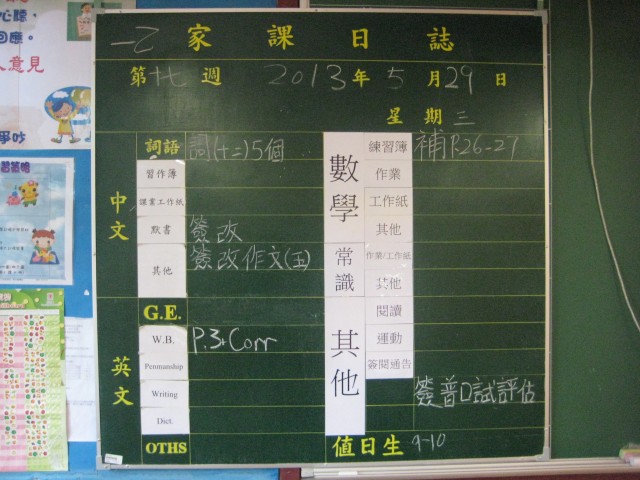 心聽,
回應。
人意見
爭吵
一乙 家課日誌
第十七週 2013年5月29日
星期三
中文
詞語 詞(十二)5個
習作簿
課業工作紙
默書 簽改
其他 簽改作文(五)
G.E.
英文
W.B. P.31 Corr
Penmanship
Writing
Dict.
OTHS
數學
練習簿 補P.26-27
作業
工作紙
其他
常識
作業/工作紙
其他
其他
閱讀
運動
簽閱通告
簽普口試評估
值日生 9-10